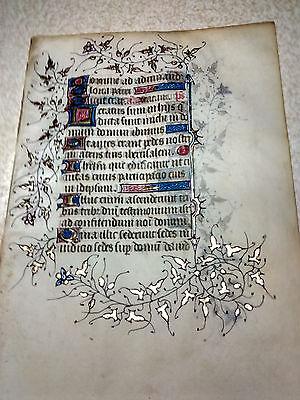 Domine ad adiuuand
Gloria patri
Sicut erat
Letatus sum in hijs q
dicta sunt michi in do
mum domini ibimus
Stantes erant pedes nostri
in atrijs tuis iherusalem
que edificatur ut ci
uitas cuius participatio eius
in idipsum
Illuc enim ascenderunt tri
bus tribus dni testimonium isrl
ad confitendum nomi domini
Quia illic sederunt sedes in
iudicio sedes sup domum dauid